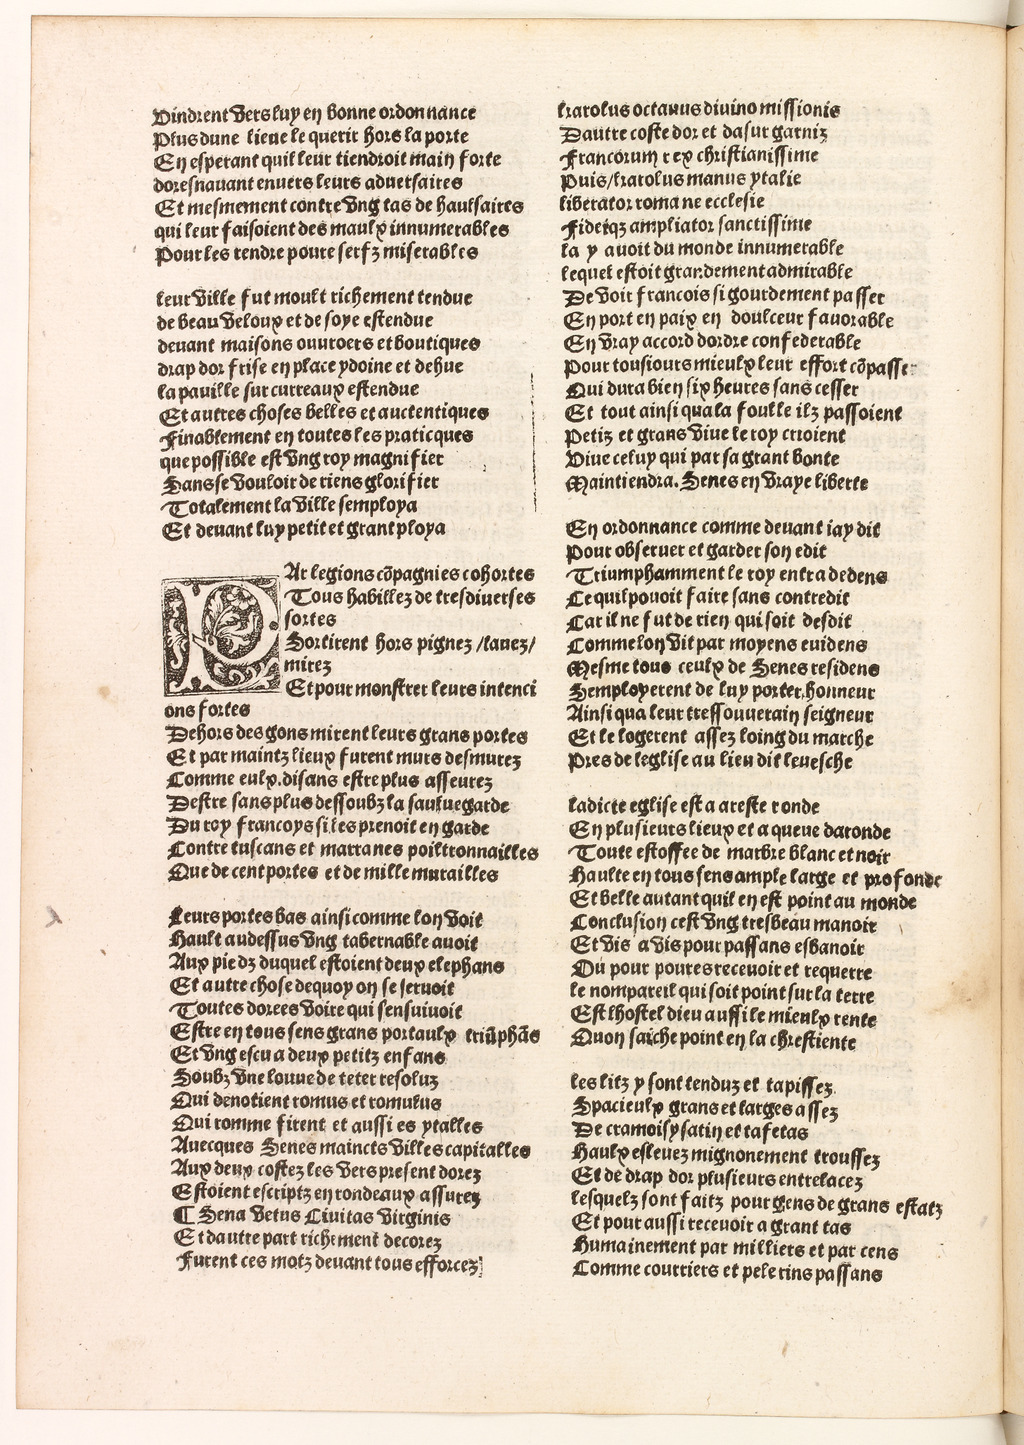 Vindrent vers luy en bonne ordonnance
Plus dune lieue le querir hors la porte
En esperant quil leur tiendroit main forte
doresnauant enuers leurs aduersaires
Et mesmement contre vng tas de haulsaires
qui leur faisoient des maulx innumerables
Pour les rendre poure serfz miserables
leur ville fut moult richement tendue
de beau veloux et de soye estendue
deuant maisons ouuroers et boutiques
drap dor frise en place ydoine et dehue
la pauille sur curreaux estendue
Et autres choses belles et auctentiques
Finablement en toutes les praticques
que possible est vng roy magnifier
Sans se vouloir de riens glorifier
Totalement la ville semploya
Et deuant luy petit et grant ploya
PAr legions cōpagnies cohortes
Tous habillez de tresdiuerses
sortes
Sortirent hors pignez /lauez/
mirez
Et pour monstrer leurs intenci
ons fortes
Dehors des gons mirent leurs grans portes
Et par maintz lieux furent murs desmurez
Comme eulx.disans estre plus asseurez
Destre sans plus dessoubz la sauluegarde
Du roy francoys si les prenoit en garde
Contre tuscans et marranes poiltronnailles
Que de cent portes et de mille murailles
Leurs portes bas ainsi comme lon voit
Hault audessus vng tabernable auoit
Aux piedz duquel estoient deux elephans
Et autre chose dequoy on se seruoit
Toutes dorees voire qui sensuiuoit
Estre en tous sens grans portaulx triūphās
Et vng escu a deux petitz enfans
Soubz vne louue de teter resoluz
Qui denotient romus et romulus
Qui romme firent et aussi es ytalles
Auecques Senes maincts villes capitalles
Aux deux costez les vers present dorez
Estoient escriptz en rondeaux assurez
¶ Sena vetus Ciuitas virginis
Et dautre part richement decorez
Furent ces motz deuant tous efforcez
karolus octauus diuino missionis
Dautre coste dor et dasur garniz
Francorum rex christianissime
Puis/karolus manus ytalie
liberator romane ecclesie
Fideiqz ampliator sanctissime
la y auoit du monde innumerable
lequel estoit grandement admirable
De voir francois si gourdement passer
En port en paix en doulceur fauorable
En vray accord dordre confederable
Pour tousiours mieulx leur effort cōpasser
Qui dura bien six heures sans cesser
Et tout ainsi qua la foulle ilz passoient
Petiz et grans viue le roy crioient
Viue celuy qui par sa grant bonte
Maintiendra. Senes en vraye liberte
En ordonnance comme deuant iay dit
Pour obseruer et garder son edit
Triumphamment le roy entra dedens
Ce quil pouoit faire sans contredit
Car il ne fut de rien qui soit desdit
Comme lon vit par moyens euidens
Mesme tous ceulx de Senes residens
Semployerent de luy porter, honneur
Ainsi qua leur tressouuerain seigneur
Et le logerent assez loing du marche
Pres de leglise au lieu dit leuesche
ladicte eglise est a areste ronde
En plusieurs lieux et a queue daronde
Toute estoffee de marbre blanc et noir
Haulte en tous sens ample large et profonde
Et belle autant quil en est point au monde
Conclusion cest vng tresbeau manoir
Et vis a vis pour passans esbanoir
Ou pour poures receuoir et requerre
le nompareil qui soit point sur la terre
Est lhostel dieu aussi le mieulx rente
Quon saiche point en la chrestiente
les litz y sont tenduz et tapissez
Spacieulx grans et larges assez
De cramoisy satin et tafetas
Haulx esleuez mignonement troussez
Et de drap dor plusieurs entrelacez
lesquelz sont faitz pour gens de grans estatz
Et pour aussi receuoir a grant tas
Humainement par milliers et par cens
Comme courriers et pelerins passans